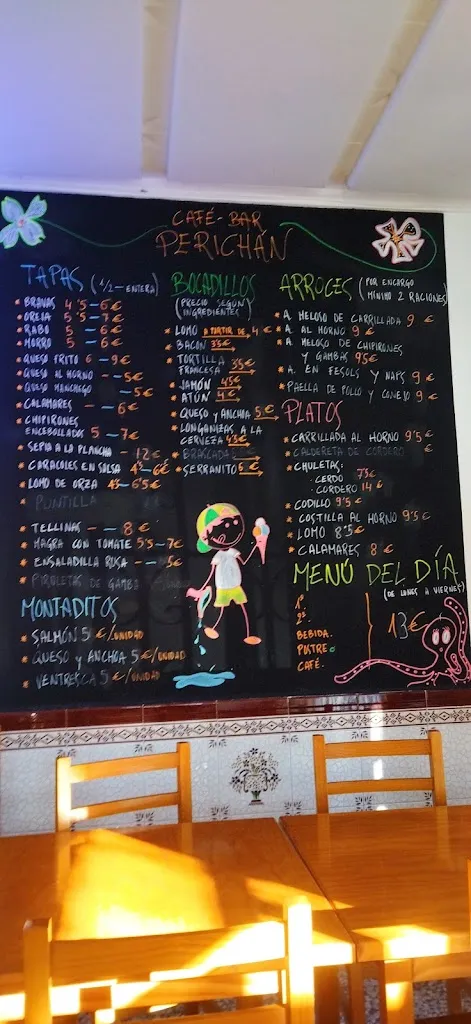 CAFÉ-BAR
PERICHÁN
TAPAS (1/2 - ENTERA)
BRAVAS 4'5 - 6€
OREJA 5'5 - 7€
RABO 5 - 6€
MORRO 5 - 6€
QUESO FRITO 6 - 9€
QUESO AL HORNO - - 5€
QUESO MANCHEGO - - 5€
CALAMARES - - 6€
CHIPIRONES
ENCEBOLLADOS 5 - 7€
SEPIA A LA PLANCHA - 12€
CARACOLES EN SALSA 4'5 - 6€
LOMO DE ORZA 4'5 - 6'5€
PUNTILLA
TELLINAS - - 8€
MAGRA CON TOMATE 5'5 - 7€
ENSALADILLA RUSA - - 5€
PIQUETAS DE GAMBA
MONTADITOS
SALMÓN 5€/UNIDAD
QUESO Y ANCHOA 5€/UNIDAD
VENTRESCA 5€/UNIDAD
BOCADILLOS
(PRECIO SEGÚN
INGREDIENTES)
LOMO A PARTIR DE 4€
BACON 3'5€
TORTILLA 3'5€
FRANCESA
JAMÓN 4'5€
ATÚN 4€
QUESO Y ANCHOA 5€
LONGANIZAS A LA
CERVEZA 4'5€
BRASCADA
SERRANITO 5€
ARROCES (POR ENCARGO
MÍNIMO 2 RACIONES)
A. MELOSO DE CARRILLADA 9€
A. AL HORNO 9€
A. MELOSO DE CHIPIRONES
Y GAMBAS 9'5€
A. EN FESOLS Y NAPS 9€
PAELLA DE POLLO Y CONEJO 9€
PLATOS
CARRILLADA AL HORNO 9'5€
CALDERETA DE CORDERO
CHULETAS:
· CERDO 7'5€
· CORDERO 14€
CODILLO 9'5€
COSTILLA AL HORNO 9'5€
LOMO 8'5€
CALAMARES 8€
MENÚ DEL DÍA
(DE LUNES A VIERNES)
1º
2º
BEBIDA.
POSTRE O
CAFÉ.
13€